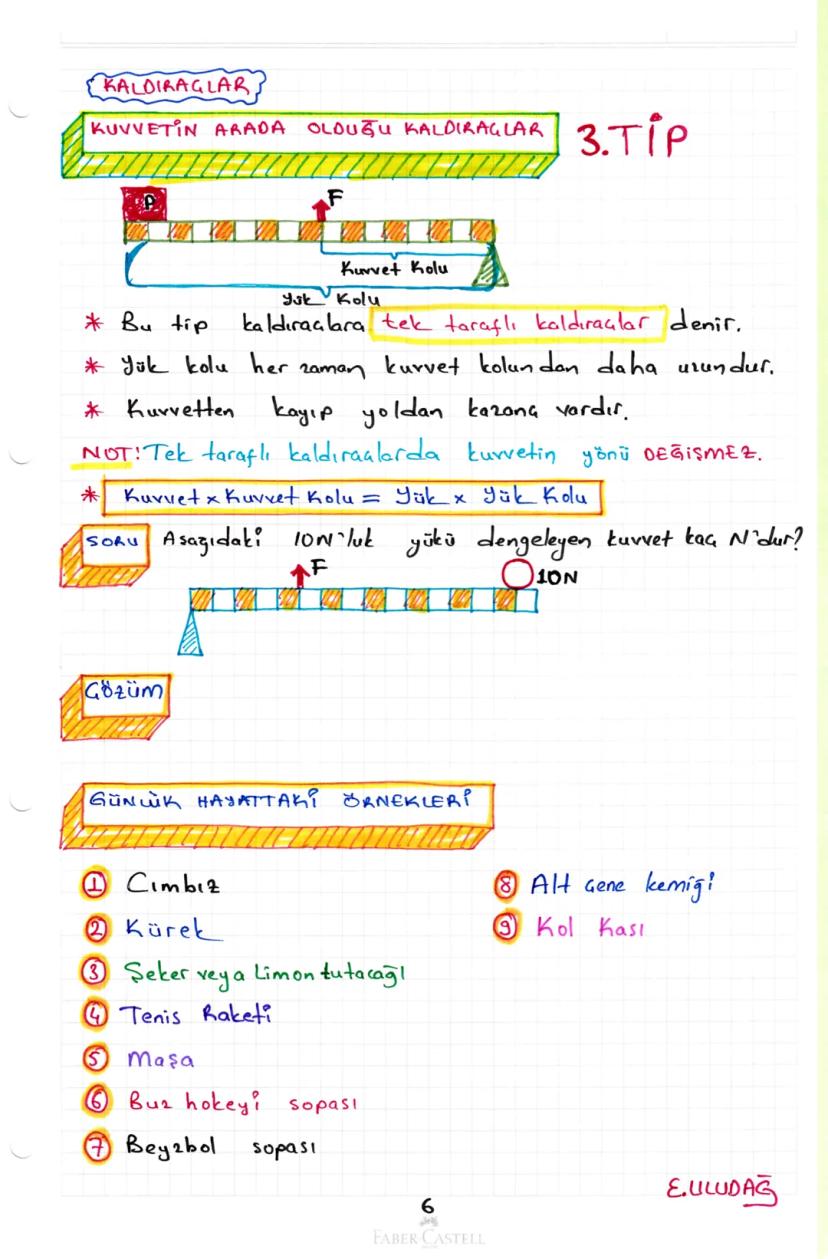 KALDIRAÇLAR
KUVVETİN ARADA OLDUĞU KALDIRAÇLAR
3.TİP
P
F
Kuvvet Kolu
Yük Kolu
* Bu tip kaldıraçlara tek taraflı kaldıraçlar denir.
* Yük kolu her zaman kuvvet kolundan daha uzundur.
* Kuvvetten kayıp yoldan kazanç vardır.
NOT! Tek taraflı kaldıraçlarda kuvvetin yönü DEĞİŞMEZ.
* Kuvvet x Kuvvet Kolu = Yük x Yük Kolu
SORU
Aşağıdaki 10N'luk yükü dengeleyen kuvvet kaç N'dur?
F
10N
ÇÖZÜM
GÜNLÜK HAYATTAKİ ÖRNEKLERİ
1 Cımbız
2 Kürek
3 Şeker veya Limon tutacağı
4 Tenis Raketi
5 Maşa
6 Buz hokeyi sopası
7 Beyzbol sopası
8 Alt çene kemiği
9 Kol Kası
E.ULUDAĞ
6
FABER-CASTELL